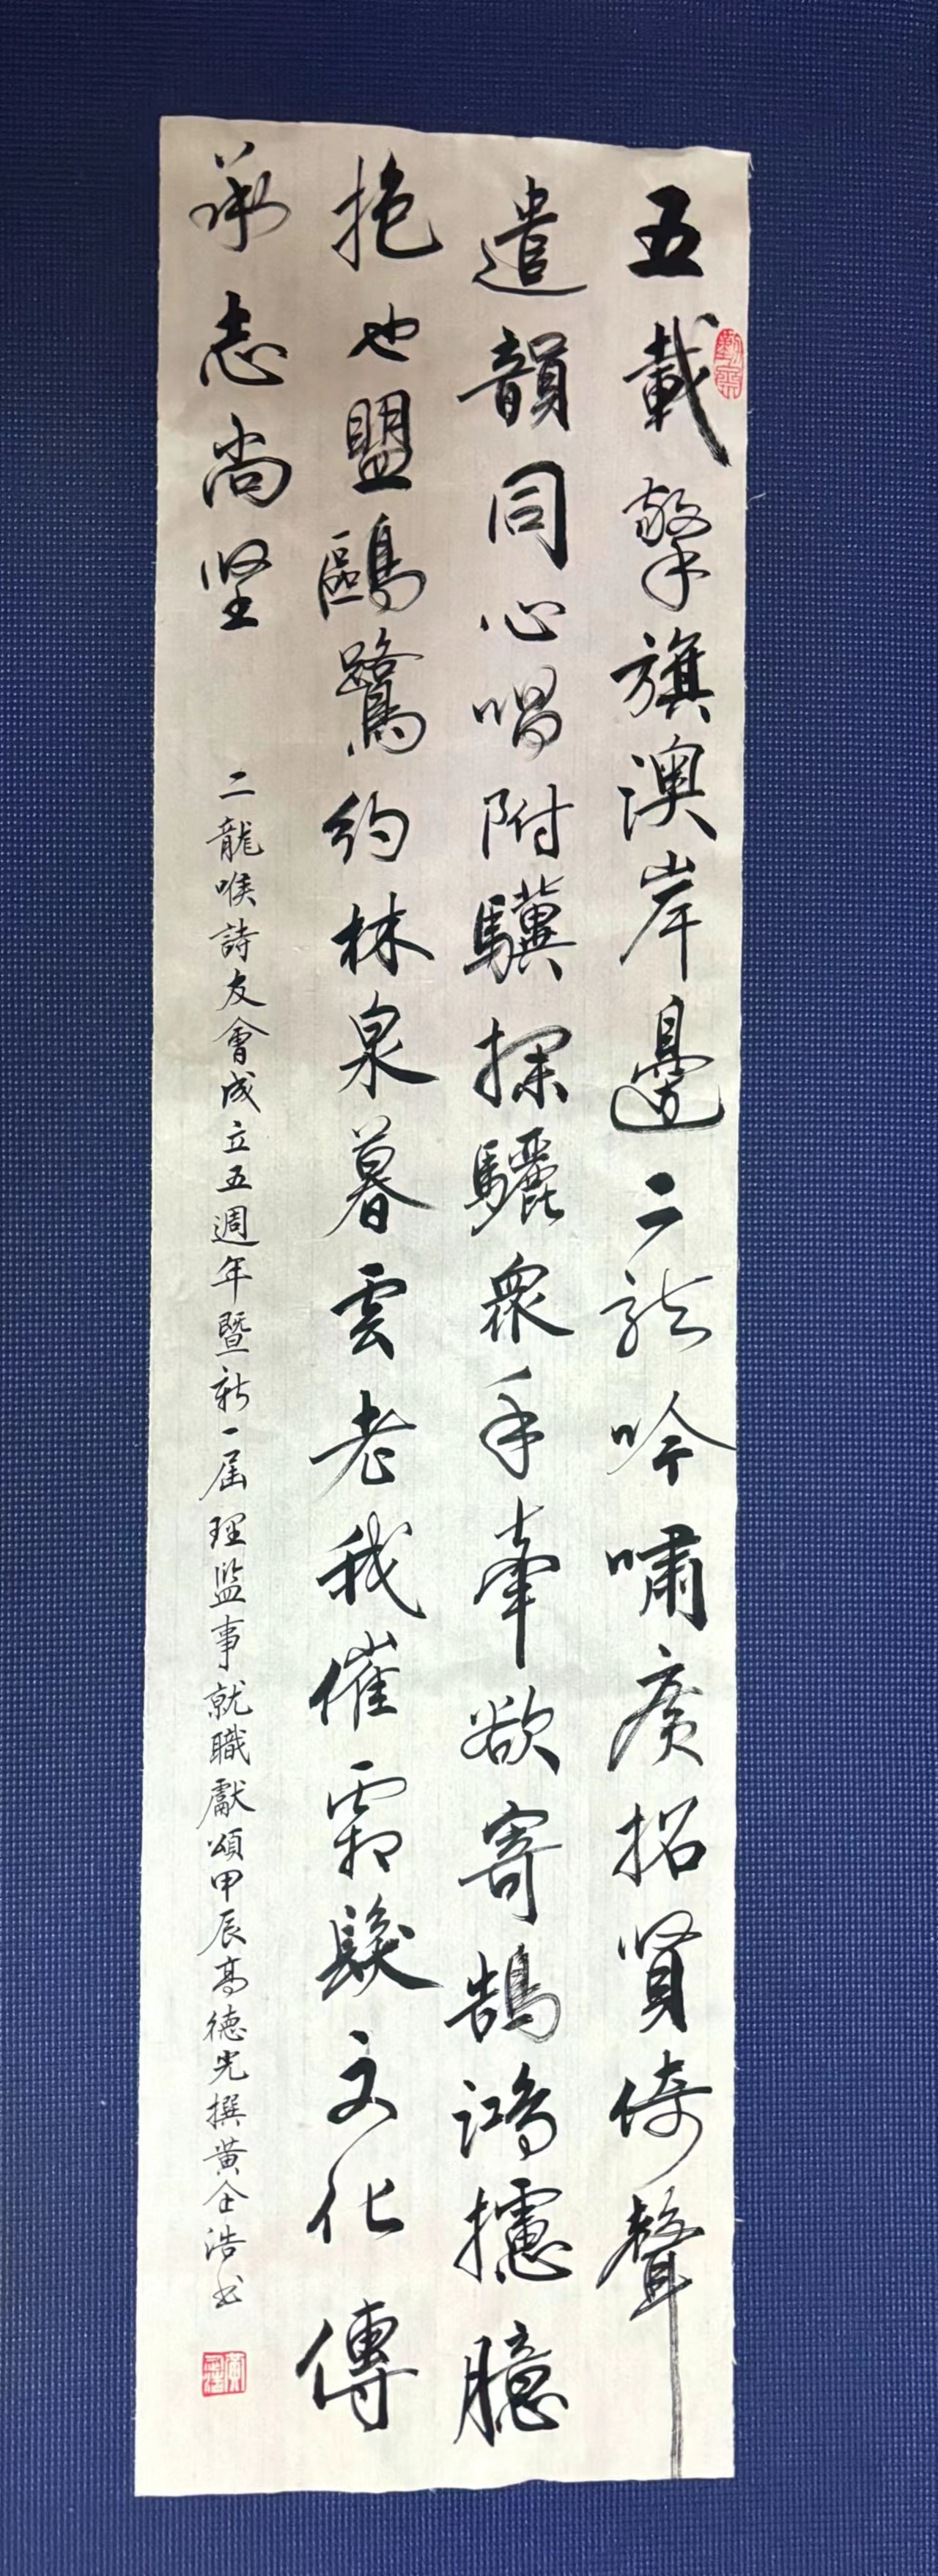 五載擎旗澳岸邊二龍吟嘯廣招賢倚聲
遣韻同心唱附驥探驪衆手牽欲寄鵠鴻攄臆
抱也盟鷗鷺約林泉暮雲老我催霜鬢文化傳
承志尚堅
二龍喉詩友會成立五週年暨新一届理监事就職獻頌甲辰高德光撰黄全浩书